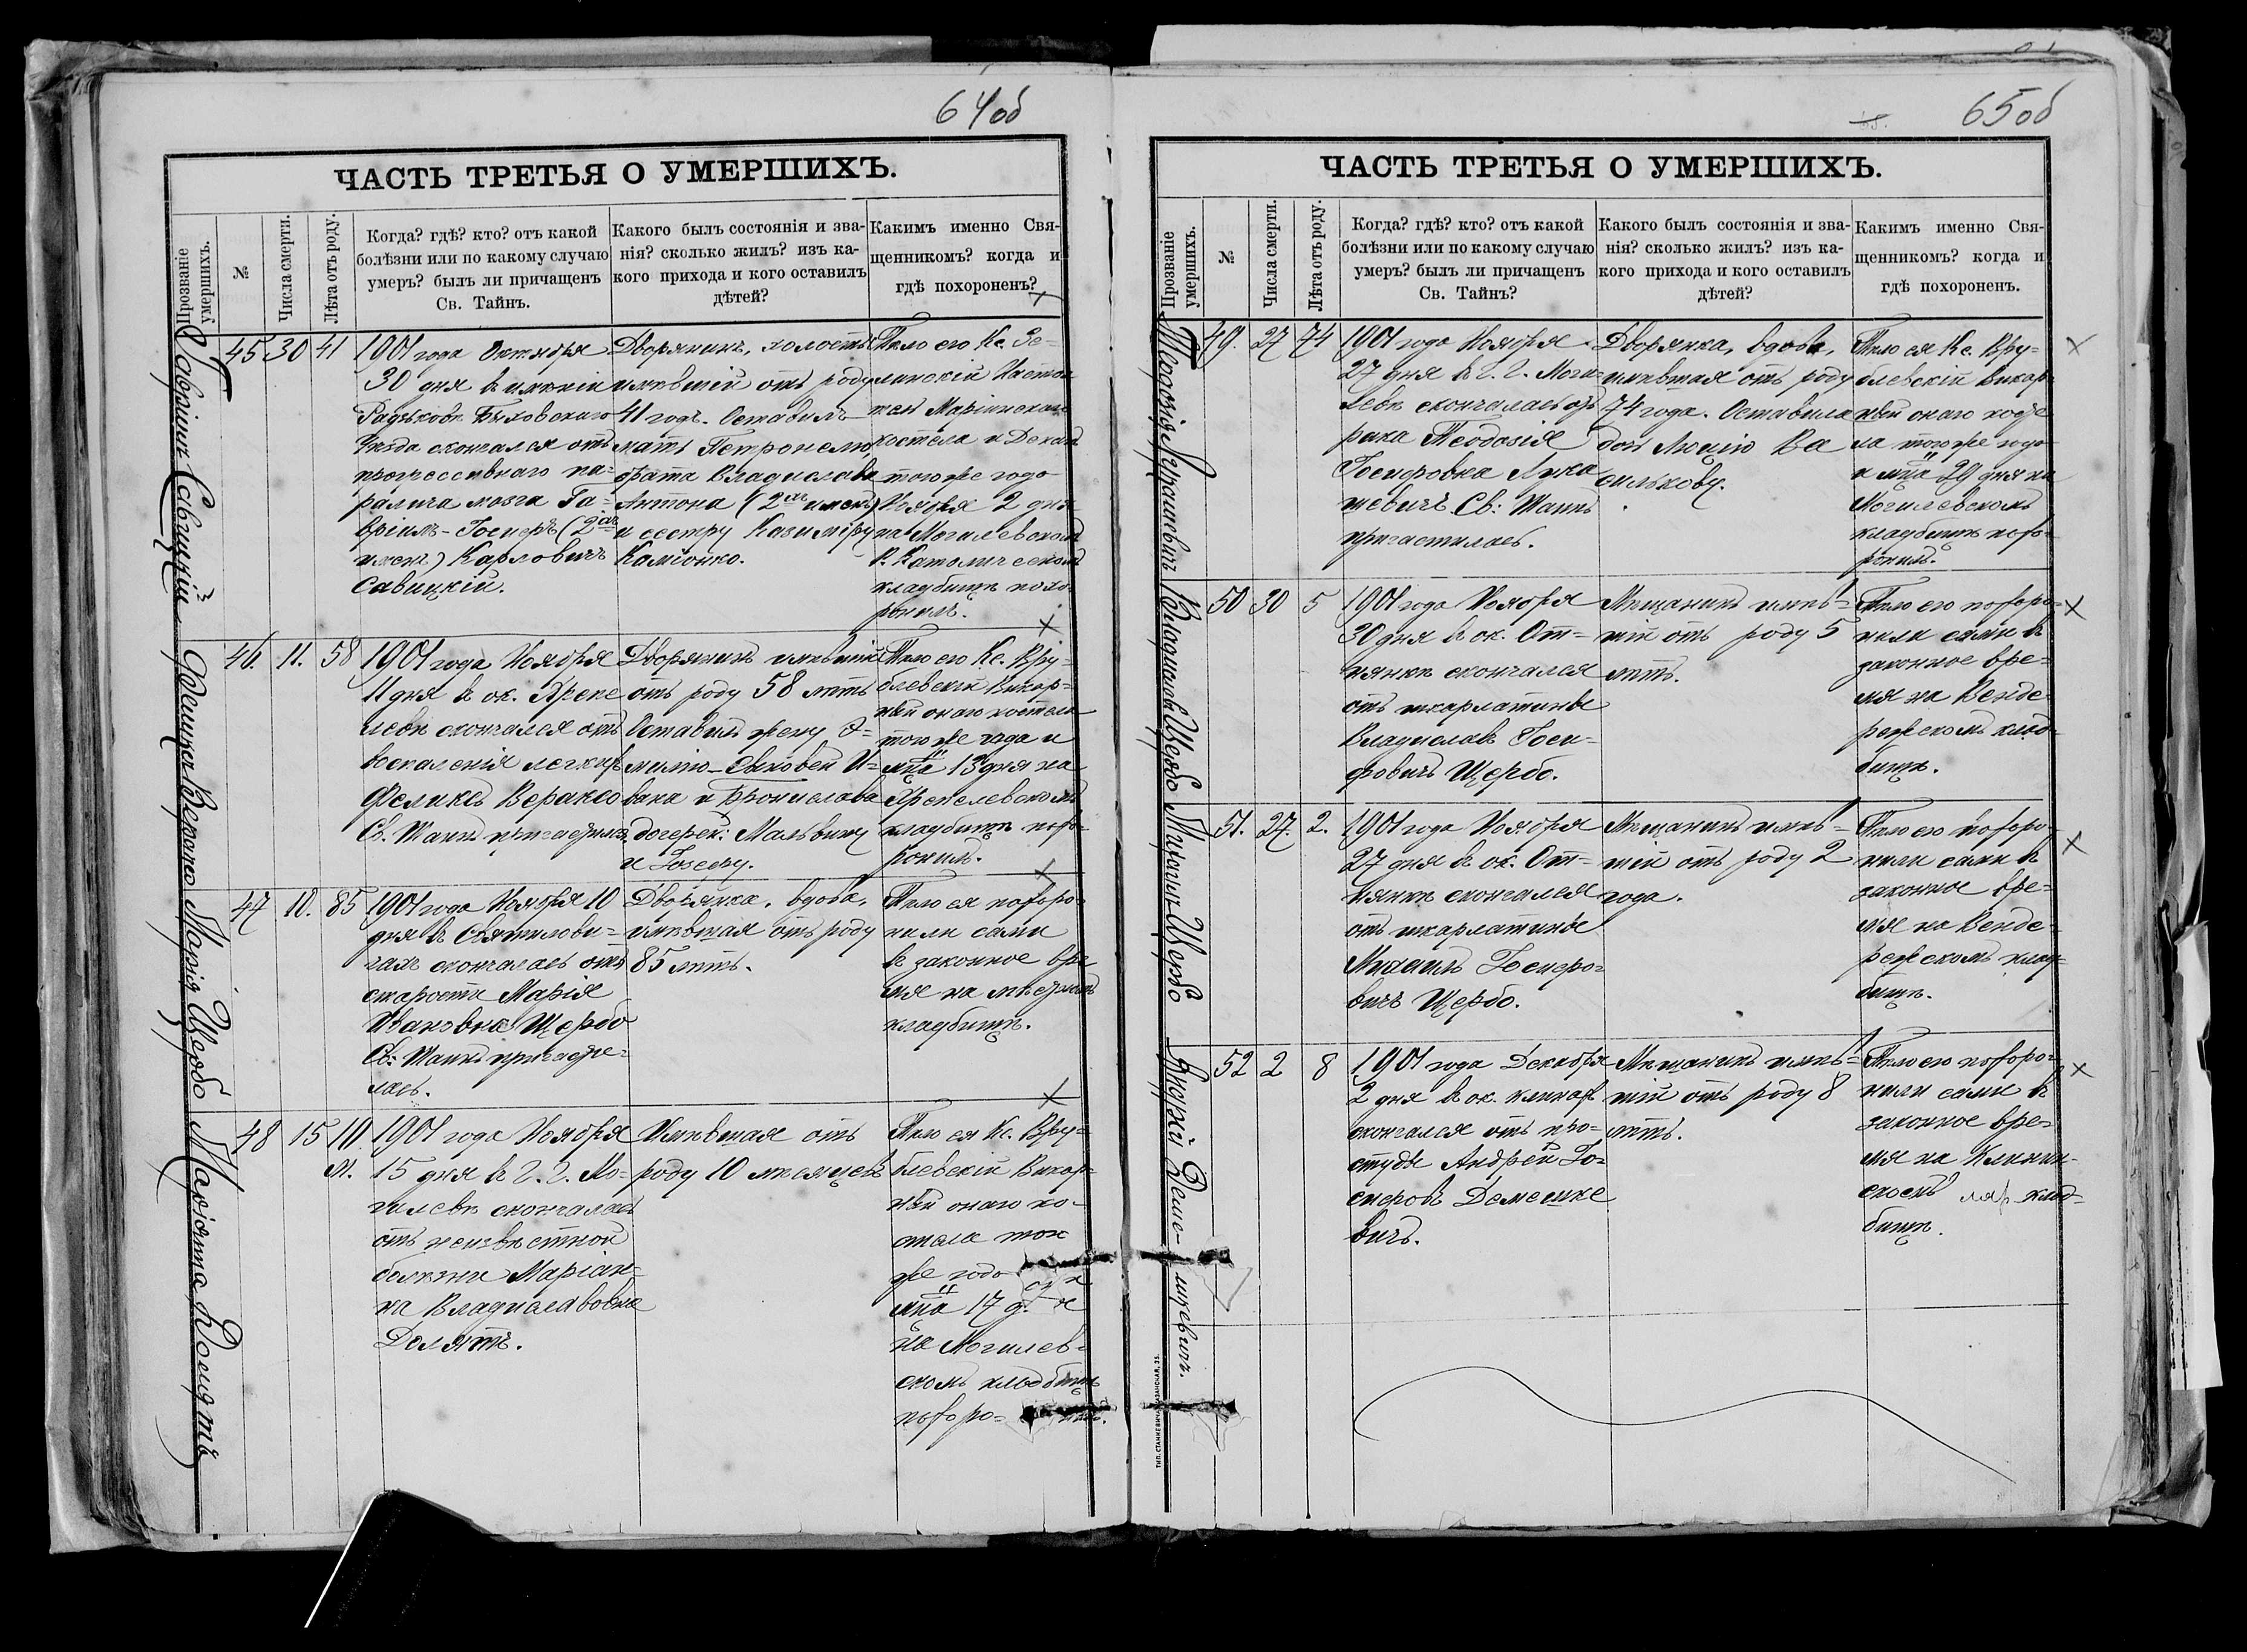 64 об
ЧАСТЬ ТРЕТЬЯ О УМЕРШИХЪ.
Прозваніе умершихъ.
№
Числа смерти.
Лѣта отъ роду.
Когда? гдѣ? кто? отъ какой
болѣзни или по какому случаю
умеръ? былъ ли причащенъ
Св. Тайнъ.
Какого былъ состоянія и зва-
нія? сколько жилъ? изъ ка-
кого прихода и кого оставилъ
дѣтей?
Какимъ именно Свя-
щенникомъ? когда и
гдѣ похороненъ?
Гавріилъ Савицкій
45. 30 41
1901 года Октября
30 дня въ имѣніи
Радьковѣ Быховскаго
Уѣзда скончался отъ
прогрессивнаго па-
ралича мозга Га-
вріилъ-Іосифъ (2хъ
именъ) Карловичъ
Савицкій.
Дворянинъ, холостъ
имѣвшій отъ роду
41 годъ. Оставилъ
мать Петронелю,
брата Владислава
Антона (2хъ именъ)
и сестру Казиміру
Камionко.
Тѣло его Кс. Зе-
линскій Насто
тель Маріинскаго
костела и Деканъ
того же года
Ноября 2 дня
на Могилевскомъ
Р. Католическомъ
кладбищѣ похо-
ронилъ.
Феликсъ Вераксо
46. 11. 58
1901 года Ноября
11 дня въ ок. Хрепе
левѣ скончался отъ
воспаленія легкихъ
Феликсъ Вераксо
Св. Таинъ причастился.
Дворянинъ имѣвшій
отъ роду 58 лѣтъ
Оставилъ жену Э-
милію - сыновей И-
вана и Бронислава
дочерей: Мальвину
и Іозефу.
Тѣло его Кс. Вру-
блевскій Викар-
ный онаго костела
того же года и
мца 13 дня на
Хрепелевскомъ
кладбищѣ похо-
ронилъ.
Марія Щербо
47 10. 85
1901 года Ноября 10
дня въ Святилови-
чахъ скончалась отъ
старости Марія
Ивановна Щербо
Св: Таинъ причасти-
лась.
Дворянка, вдова,
имѣвшая отъ роду
85 лѣтъ.
Тѣло ея похоро-
нили сами
въ законное вре
мя на мѣстномъ
кладбищѣ.
Маріянна Долятъ
48 15 10
м.
1901 года Ноября
15 дня въ г. г. Мо-
гилевѣ скончалась
отъ неизвѣстной
болѣзни Маріан-
на Владиславовна
Долятъ.
Имѣвшая отъ
роду 10 мѣсяцевъ
Тѣло ея Кс. Вру-
блевскій Викар-
ный онаго ко-
стела того
же года
мца 17 д.
на Могилев-
скомъ кладбищѣ
похоро-
65 об
ЧАСТЬ ТРЕТЬЯ О УМЕРШИХЪ.
Прозваніе умершихъ.
№
Числа смерти.
Лѣта отъ роду.
Когда? гдѣ? кто? отъ какой
болѣзни или по какому случаю
умеръ? былъ ли причащенъ
Св. Тайнъ?
Какого былъ состоянія и зва-
нія? сколько жилъ? изъ ка-
кого прихода и кого оставилъ
дѣтей?
Какимъ именно Свя-
щенникомъ? когда и
гдѣ похороненъ.
Теодозія Лукашевичъ
49. 27 74
1901 года Ноября
27 дня въ г. г. Моги-
левѣ скончалась отъ
рака Теодозія
Іосифовна Лука
шевичъ Св: Таинъ
причастилась.
Дворянка, вдова,
имѣвшая отъ роду
74 года. Оставила
дочь Люцію Ва
силькову.
Тѣло ея Кс. Вру-
блевскій Викар-
ный онаго косте
ла того же года
и мца 29 дня на
Могилевскомъ
кладбищѣ похо-
ронилъ.
Владиславъ Щербо
50 30 5
1901 года Ноября
30 дня въ ок. От-
нянкѣ скончался
отъ шкарлатины
Владиславъ Іоси-
фовичъ Щербо.
Мѣщанинъ имѣв-
шій отъ роду 5
лѣтъ.
Тѣло его похоро-
нили сами въ
законное вре-
мя на Венде-
режскомъ клад-
бищѣ.
Михаилъ Щербо
51. 27. 2.
1901 года Ноября
27 дня въ ок. От-
нянкѣ скончался
отъ шкарлатины
Михаилъ Іосифо-
вичъ Щербо.
Мѣщанинъ имѣв-
шій отъ роду 2
года.
Тѣло его похоро-
нили сами въ
законное вре-
мя на Венде-
режскомъ клад-
бищѣ.
Андрей Деме-
шкевичъ.
52 2 8
1901 года Декабря
2 дня въ ок. Клинахъ
скончался отъ про-
студы Андрей Іо-
сифовъ Демешке
вичъ.
Мѣщанинъ имѣв-
шій отъ роду 8
лѣтъ.
Тѣло его похоро-
нили сами въ
законное вре-
мя на Клинин-
скомъ клад-
бищѣ.
ТИП. СТАНКЕВИЧА, КАЗАНСКАЯ, 35.